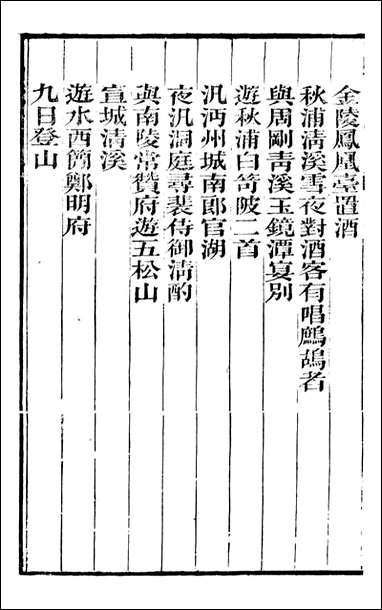 金陵鳳凰臺置酒
秋浦清溪雪夜對酒客有唱鷓鴣者
與周剛青溪玉鏡潭宴別
遊秋浦白笴陂二首
汎沔州城南郎官湖
夜汎洞庭尋裴侍御清酌
與南陵常贊府遊五松山
宣城清溪
遊水西簡鄭明府
九日登山